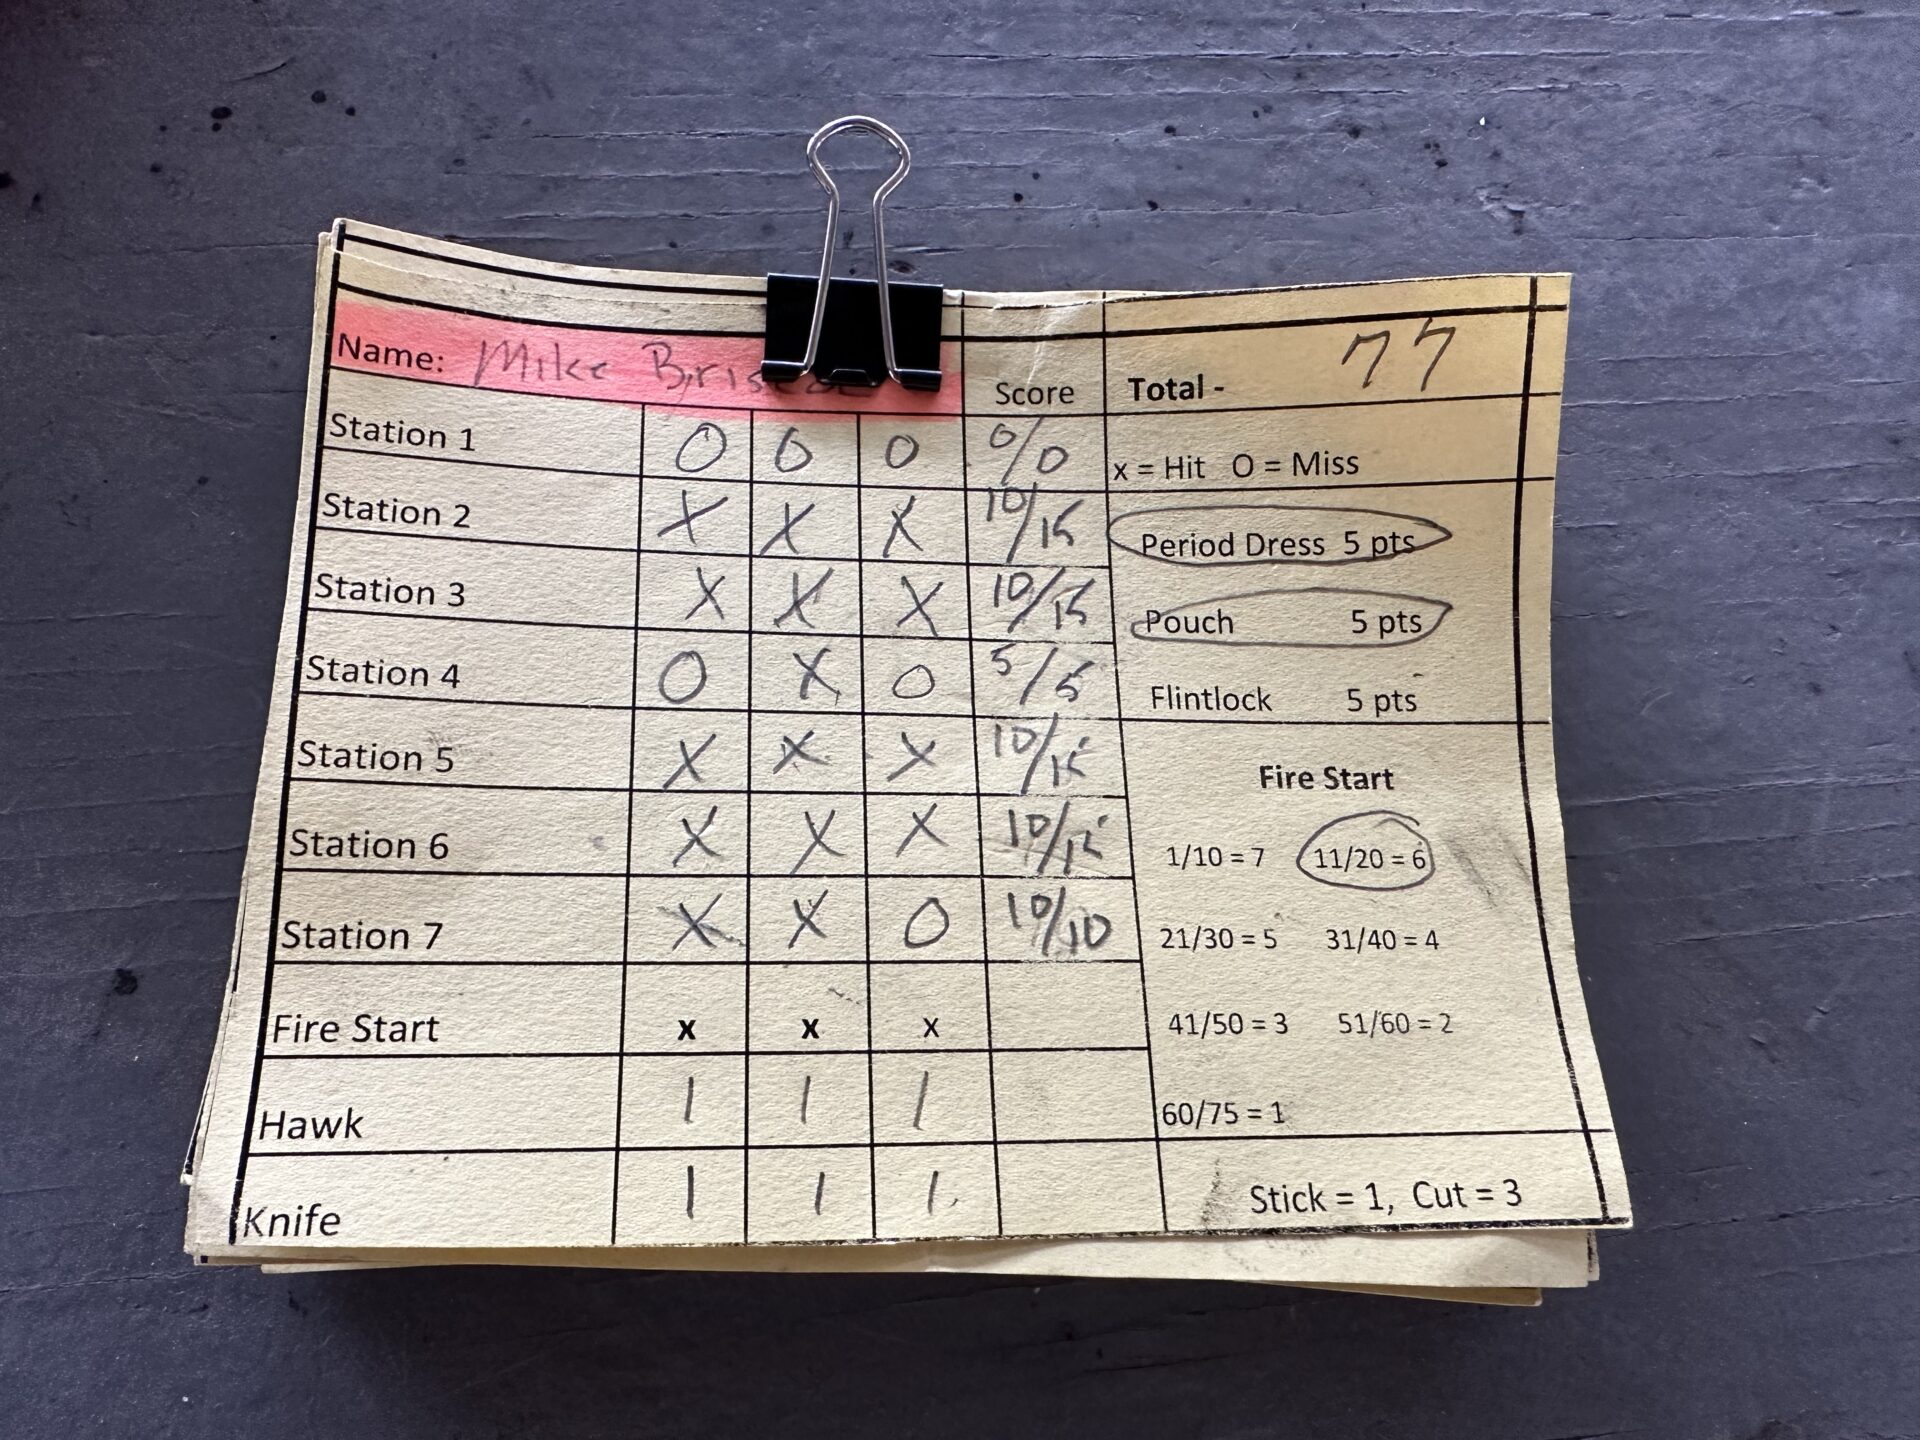 Name: Mike Score Total - 77
Station 1 O O O 0/0 x = Hit O = Miss
Station 2 X X X 10/15 Period Dress 5 pts
Station 3 X X X 10/15 Pouch 5 pts
Station 4 O X O 5/5 Flintlock 5 pts
Station 5 X X X 10/15 Fire Start
Station 6 X X X 10/15 1/10 = 7 11/20 = 6
Station 7 X X O 10/10 21/30 = 5 31/40 = 4
Fire Start x x x 41/50 = 3 51/60 = 2
Hawk 1 1 1 60/75 = 1
Knife 1 1 1 Stick = 1, Cut = 3